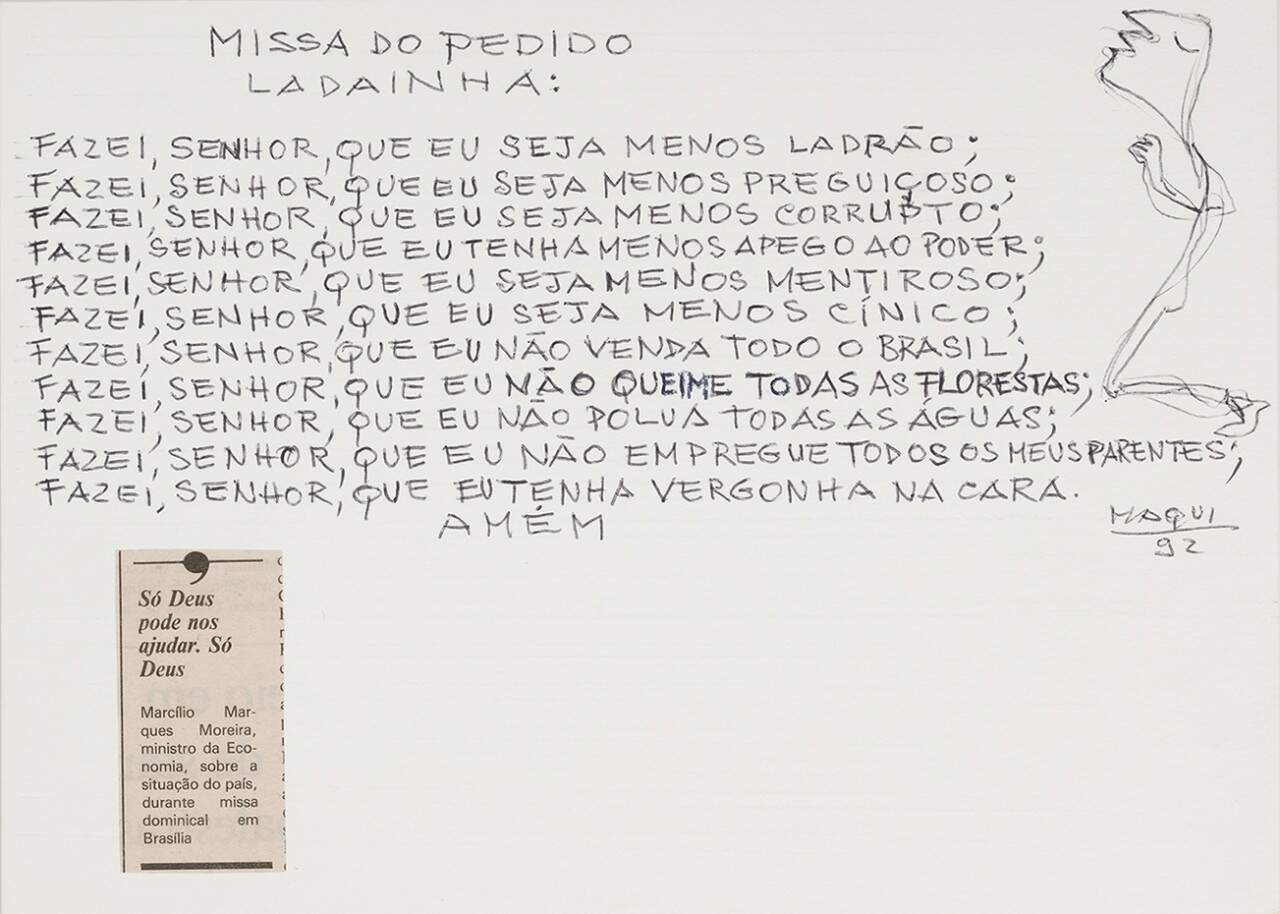 MISSA DO PEDIDO
LADAINHA:
FAZEI, SENHOR, QUE EU SEJA MENOS LADRÃO;
FAZEI, SENHOR, QUE EU SEJA MENOS PREGUIÇOSO;
FAZEI, SENHOR, QUE EU SEJA MENOS CORRUPTO;
FAZEI, SENHOR, QUE EU TENHA MENOS APEGO AO PODER;
FAZEI, SENHOR, QUE EU SEJA MENOS MENTIROSO;
FAZEI, SENHOR, QUE EU SEJA MENOS CÍNICO;
FAZEI, SENHOR, QUE EU NÃO VENDA TODO O BRASIL;
FAZEI, SENHOR, QUE EU NÃO QUEIME TODAS AS FLORESTAS;
FAZEI, SENHOR, QUE EU NÃO POLUA TODAS AS ÁGUAS;
FAZEI, SENHOR, QUE EU NÃO EMPREGUE TODOS OS MEUS PARENTES;
FAZEI, SENHOR, QUE EU TENHA VERGONHA NA CARA.
AMÉM
MAQUI
92
Só Deus
pode nos
ajudar. Só
Deus
Marcílio Mar-
ques Moreira,
ministro da Eco-
nomia, sobre a
situação do país,
durante missa
dominical em
Brasília